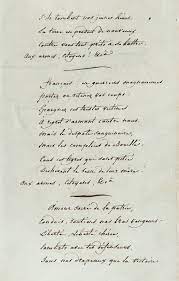 S'ils tombent nos jeunes héros
La terre en produit de nouveaux
Contre vous tout prêts à se battre
Aux armes, citoyens !
Français en guerriers magnanimes
portez ou retenez vos coups
Epargnez ces tristes victimes
A regret s'armant contre nous
Mais le despote sanguinaire
Mais les complices de Bouillé
Tous ces tigres qui sans pitié
Déchirent le sein de leur mère
Aux armes, citoyens,
Amour Sacré de la patrie,
Conduis, soutiens nos bras vengeurs
Liberté, Liberté chérie
Combats avec tes défenseurs
Sous nos drapeaux que la victoire